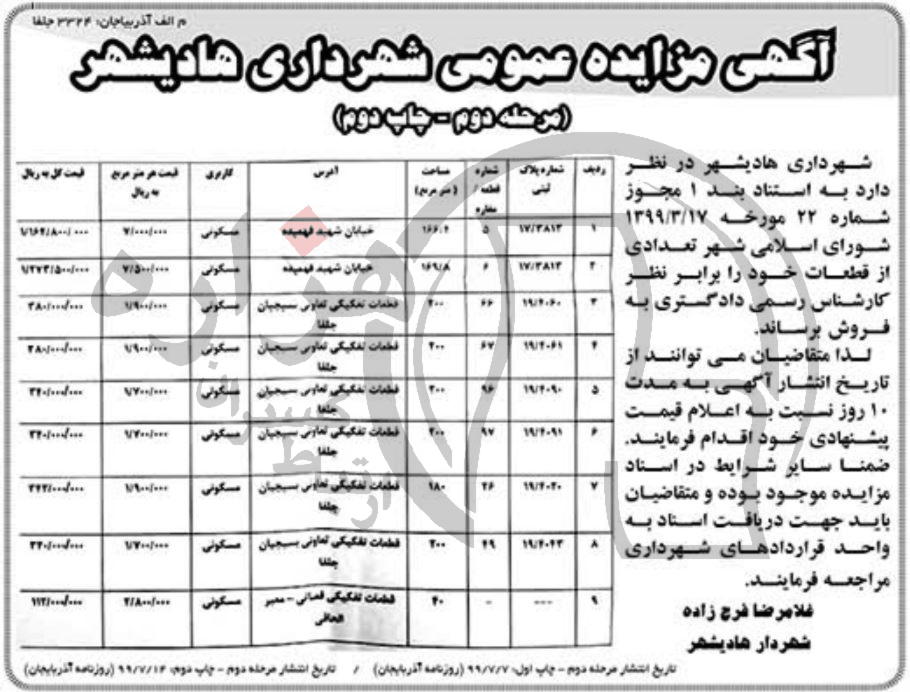 م الف آذربایجان: ۳۳۲۴ جلفا
آگهی مزایده عمومی شهرداری هادیشهر
(مرحله دوم - چاپ دوم)
شهرداری هادیشهر در نظر
دارد به استناد بند ۱ مجوز
شماره ۲۲ مورخه ۱۳۹۹/۳/۱۷
شورای اسلامی شهر تعدادی
از قطعات خود را برابر نظر
کارشناس رسمی دادگستری به
فروش برساند.
لذا متقاضیان می توانند از
تاریخ انتشار آگهی به مدت
۱۰ روز نسبت به اعلام قیمت
پیشنهادی خود اقدام فرمایند.
ضمنا سایر شرایط در اسناد
مزایده موجود بوده و متقاضیان
باید جهت دریافت اسناد به
واحد قراردادهای شهرداری
مراجعه فرمایند.
غلامرضا فرج زاده
شهردار هادیشهر
ردیف شماره پلاک ثبتی شماره قطعه / مغازه مساحت (متر مربع) آدرس کاربری قیمت هر متر مربع به ریال قیمت کل به ریال
۱ ۱۷/۳۸۱۳ ۵ ۱۶۶/۴ خیابان شهید فهمیده مسکونی ۷/۰۰۰/۰۰۰ ۱/۱۶۴/۸۰۰/۰۰۰
۲ ۱۷/۳۸۱۳ ۶ ۱۶۹/۸ خیابان شهید فهمیده مسکونی ۷/۵۰۰/۰۰۰ ۱/۲۷۳/۵۰۰/۰۰۰
۳ ۱۹/۴۰۶۰ ۶۶ ۲۰۰ قطعات تفکیکی تعاونی بسیجیان جلفا مسکونی ۱/۹۰۰/۰۰۰ ۳۸۰/۰۰۰/۰۰۰
۴ ۱۹/۴۰۶۱ ۶۷ ۲۰۰ قطعات تفکیکی تعاونی بسیجیان جلفا مسکونی ۱/۹۰۰/۰۰۰ ۳۸۰/۰۰۰/۰۰۰
۵ ۱۹/۴۰۹۰ ۹۶ ۲۰۰ قطعات تفکیکی تعاونی بسیجیان جلفا مسکونی ۱/۷۰۰/۰۰۰ ۳۴۰/۰۰۰/۰۰۰
۶ ۱۹/۴۰۹۱ ۹۷ ۲۰۰ قطعات تفکیکی تعاونی بسیجیان جلفا مسکونی ۱/۷۰۰/۰۰۰ ۳۴۰/۰۰۰/۰۰۰
۷ ۱۹/۴۰۲۰ ۲۶ ۱۸۰ قطعات تفکیکی تعاونی بسیجیان جلفا مسکونی ۱/۹۰۰/۰۰۰ ۳۴۲/۰۰۰/۰۰۰
۸ ۱۹/۴۰۴۳ ۴۹ ۲۰۰ قطعات تفکیکی تعاونی بسیجیان جلفا مسکونی ۱/۷۰۰/۰۰۰ ۳۴۰/۰۰۰/۰۰۰
۹ --- - ۴۰ قطعات تفکیکی - معبر الحاقی مسکونی ۲/۸۰۰/۰۰۰ ۱۱۲/۰۰۰/۰۰۰
تاریخ انتشار مرحله دوم - چاپ اول: ۹۹/۷/۷ (روزنامه آذربایجان) / تاریخ انتشار مرحله دوم - چاپ دوم: ۹۹/۷/۱۴ (روزنامه آذربایجان)